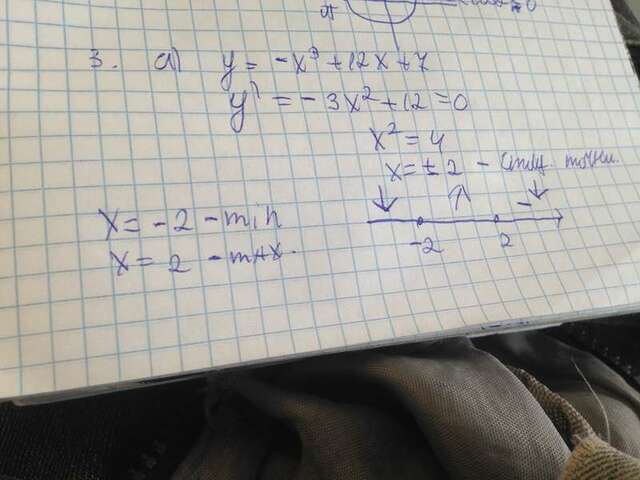 3. а) y = -x³ + 12x + 7
y' = -3x² + 12 = 0
x² = 4
x = ± 2 - стац. точки.
x = -2 - min
x = 2 - max.
-
-2 2